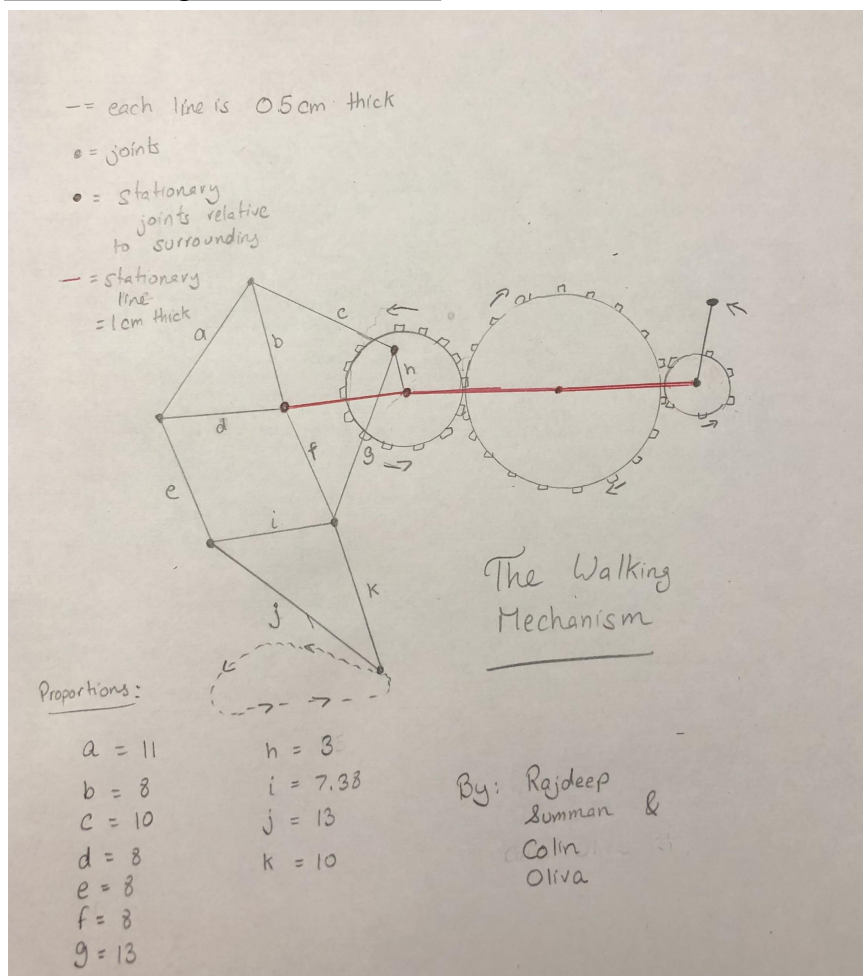 -= each line is 0.5cm thick
• = joints
• = stationary
joints relative
to surrounding
— = stationary
line
= 1cm thick
a
b
c
h
d
f
g
e
i
k
j
The Walking
Mechanism
Proportions:
a = 11
b = 8
c = 10
d = 8
e = 8
f = 8
g = 13
h = 3
i = 7.38
j = 13
k = 10
By: Rajdeep
Summan &
Colin
Oliva